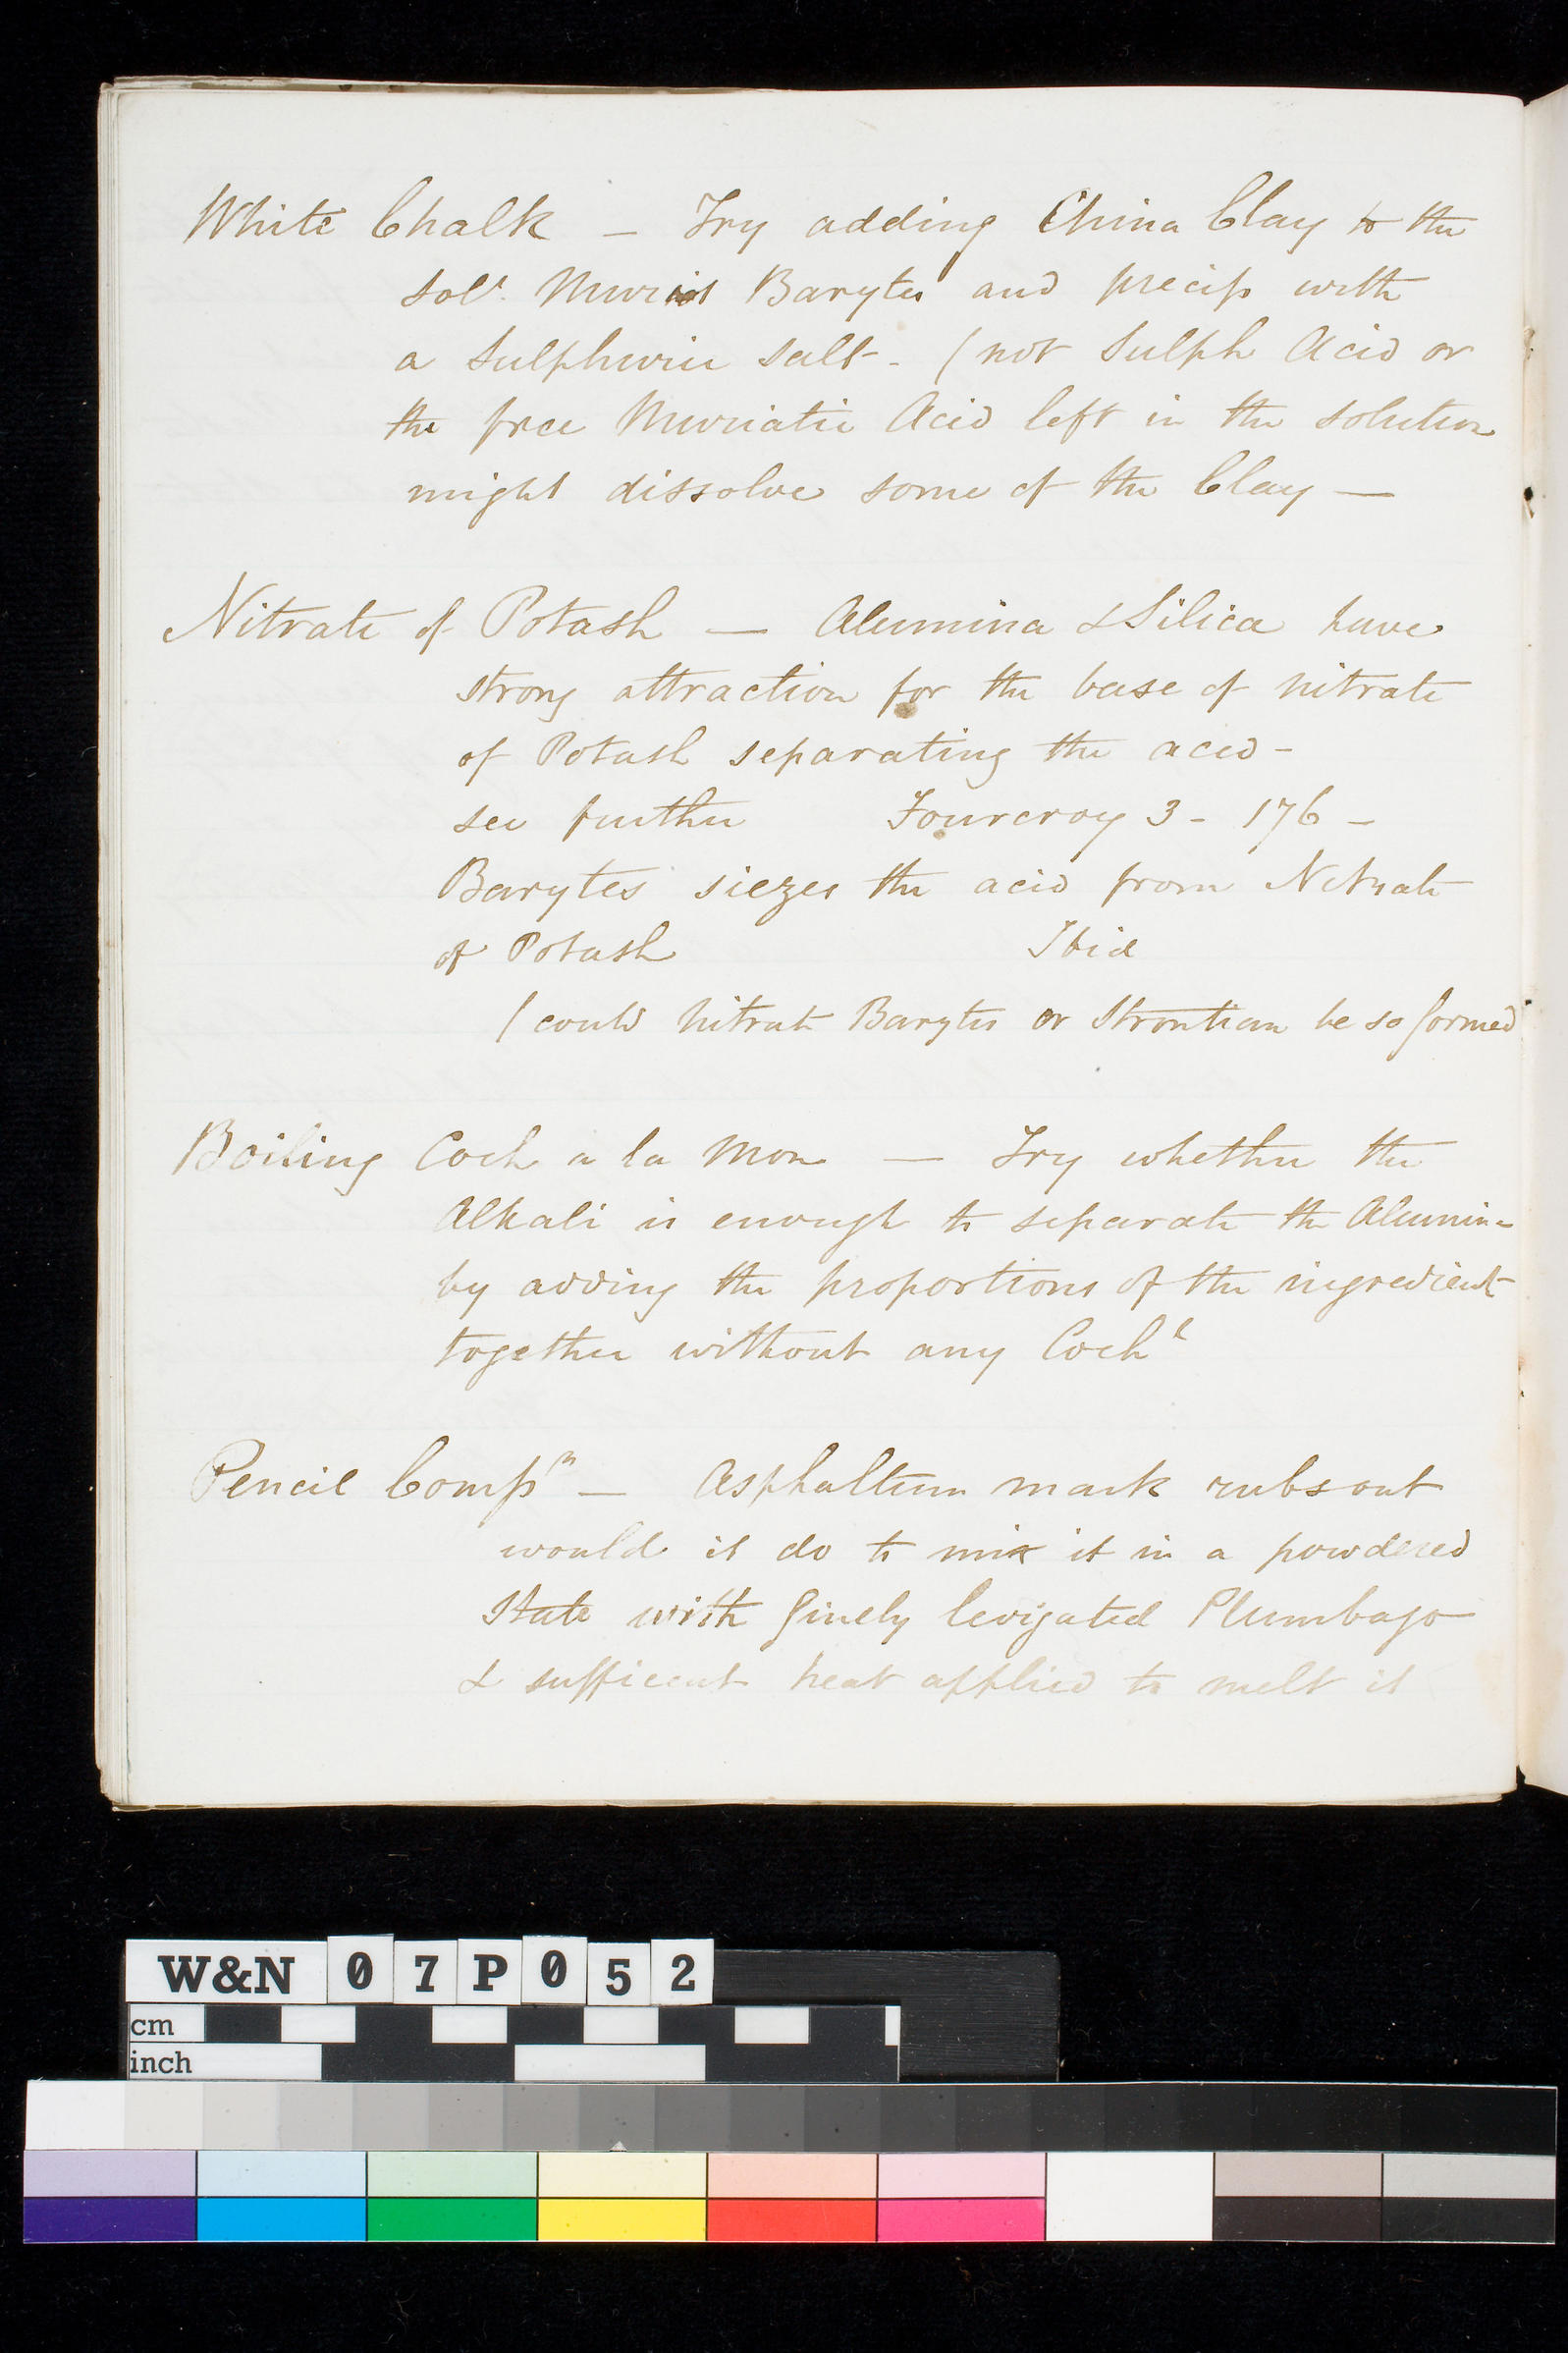 White Chalk — Try adding China Clay to the
solⁿ. Muriat Barytes and precip with
a Sulphuric salt - (not Sulph Acid or
the free Muriatic Acid left in the solution
might dissolve some of the Clay —
Nitrate of Potash — Alumina & Silica have
strong attraction for the base of nitrate
of Potash separating the acid -
see further Fourcroy 3 - 176 -
Barytes siezes the acid from Nitrate
of Potash Ibid
(could nitrate Barytes or Strontian be so formed
Boiling Coch a la Mon — Try whether the
Alkali is enough to separate the Alumina
by adding the proportions of the ingredient
together without any Cochˡ
Pencil Compⁿ — Asphaltum mark rubs out
would it do to mix it in a powdered
State with finely levigated Plumbago
& sufficent heat applied to melt it
W&N 07P052
cm
inch